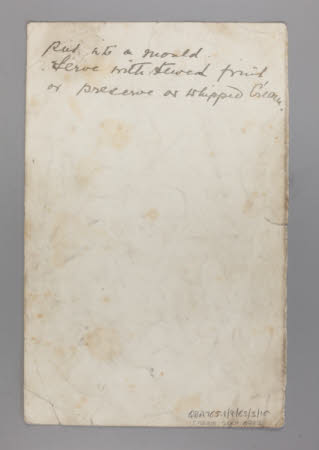 put into a mould.
Serve with stewed fruit
or preserve or whipped Cream.